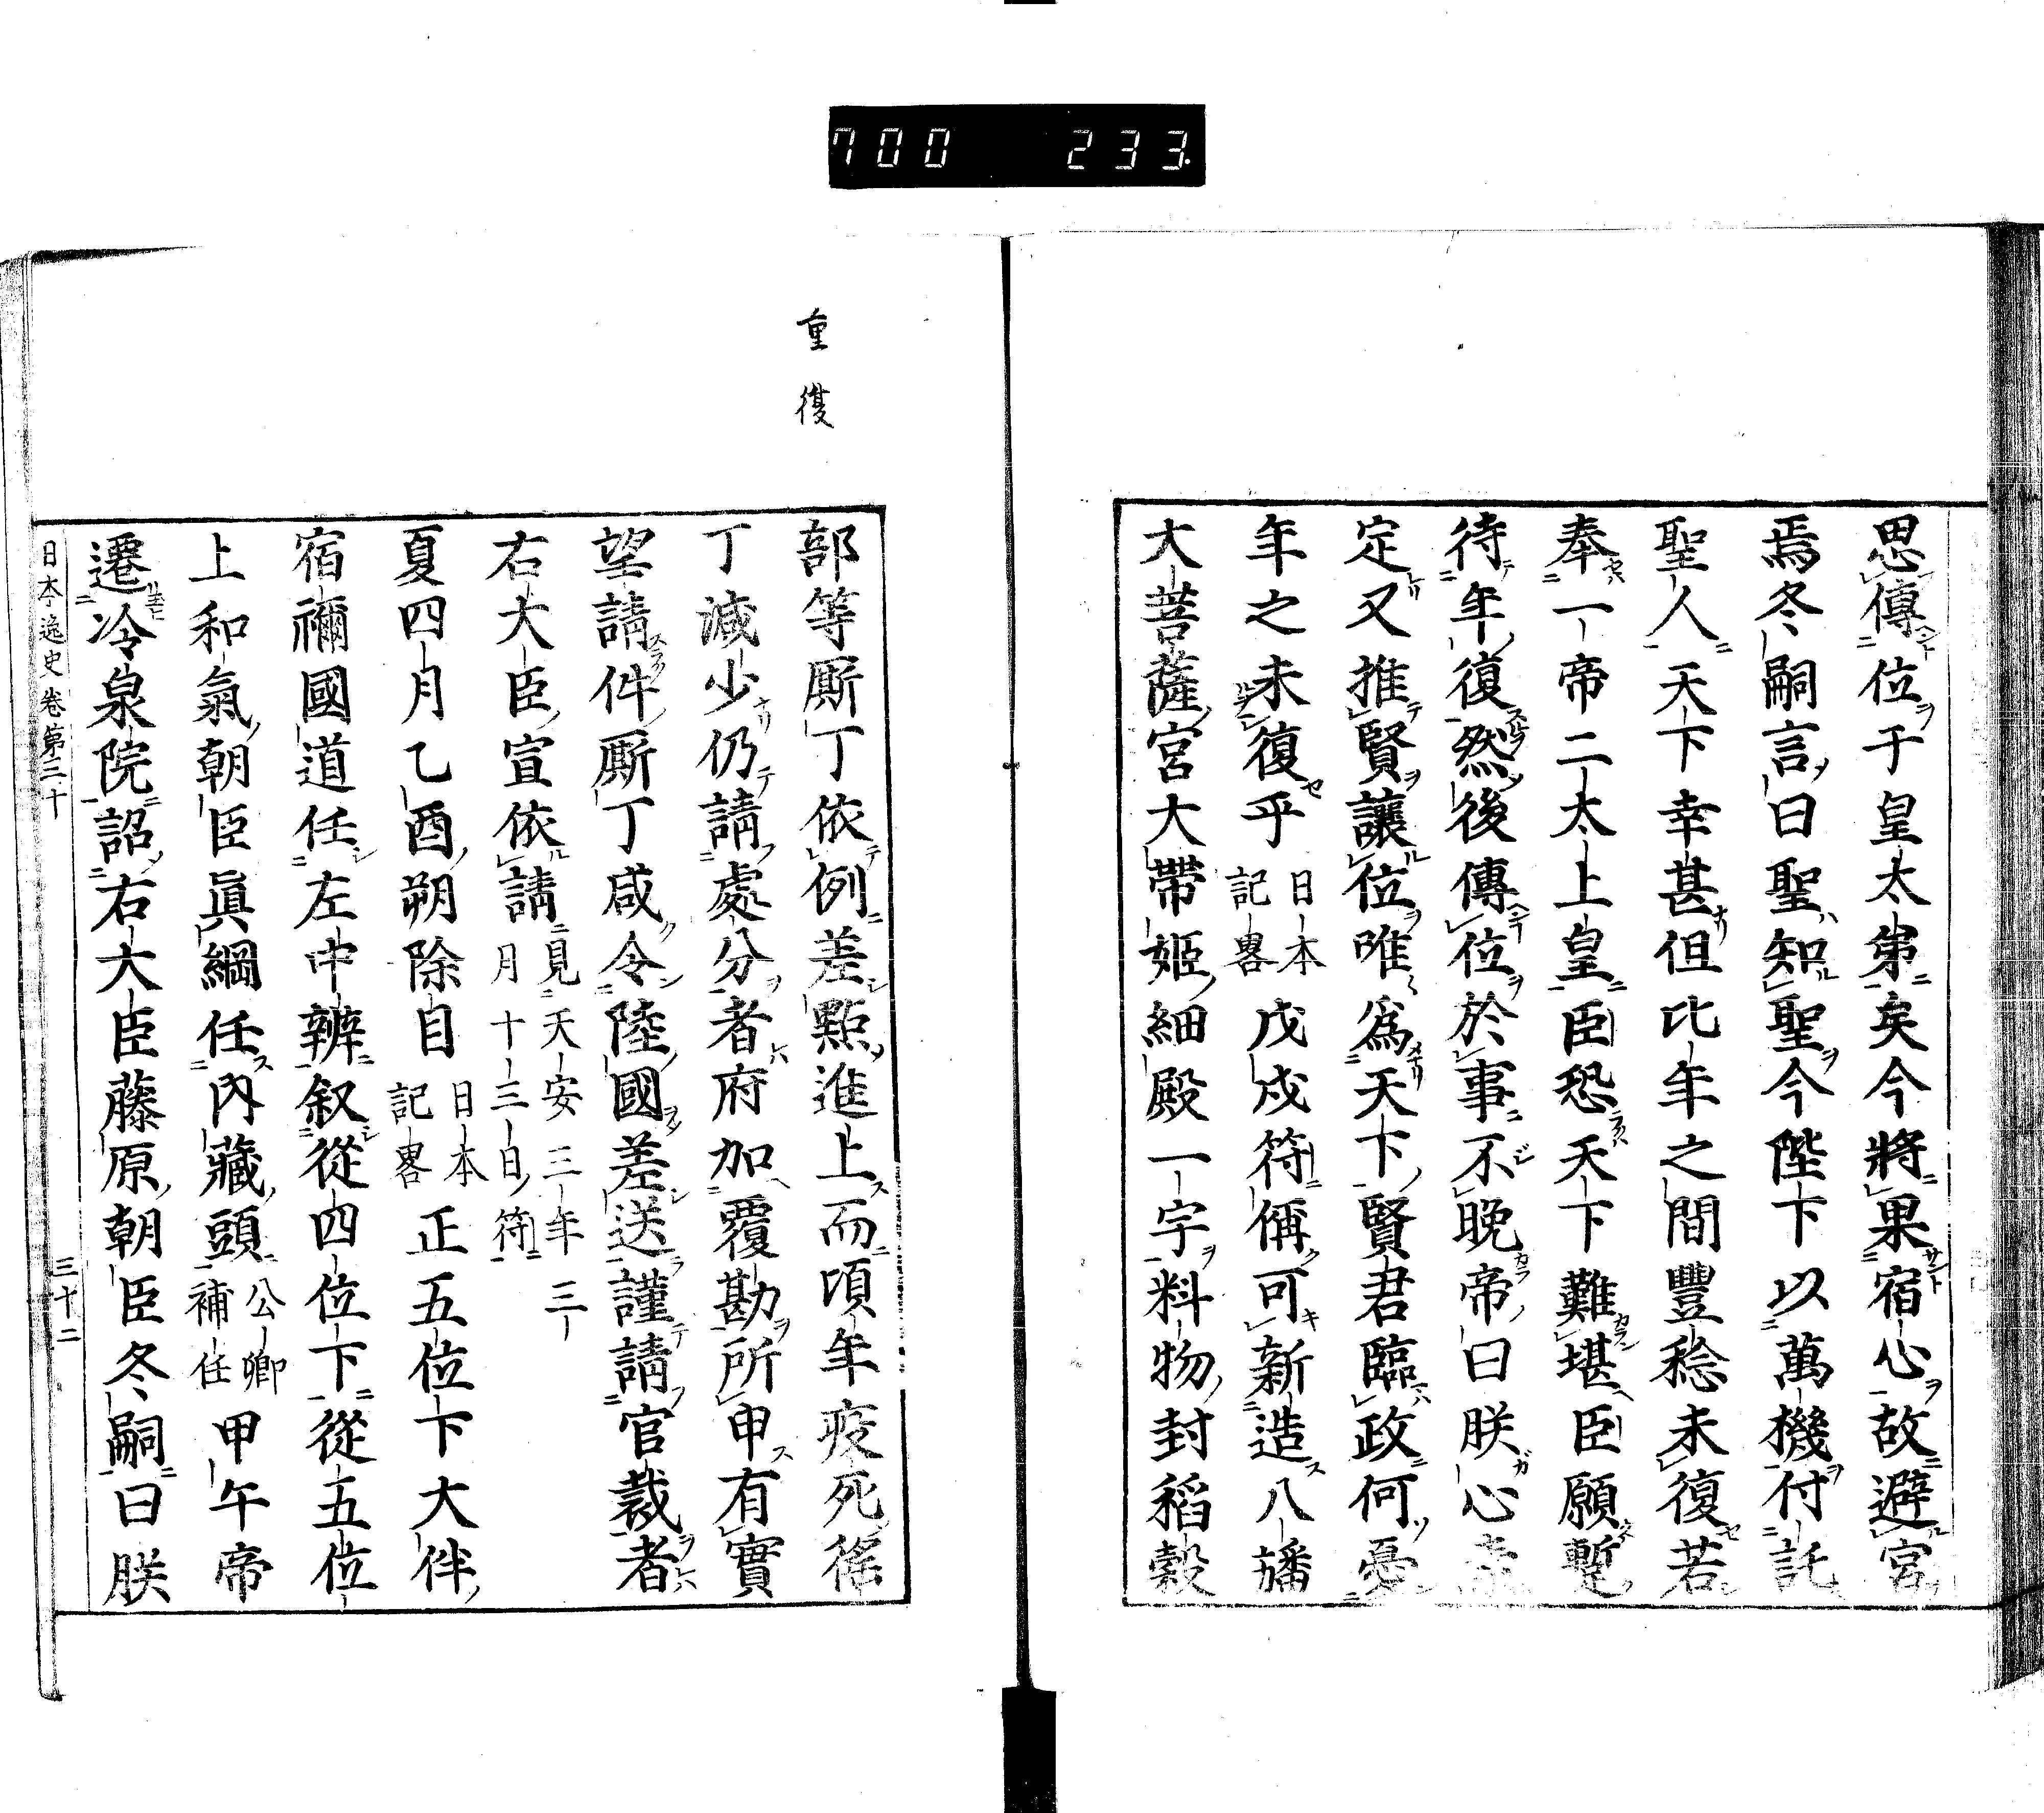 700 233
思傳位于皇太弟矣今將果宿心故避宮
焉冬嗣言曰聖知聖今陛下以萬機付託
聖人天下幸甚但比年之間豐稔未復若
奉一帝二太上皇臣恐天下難堪臣願蹔
待年復然後傳位於事不晚帝曰朕心
定又推賢讓位唯爲天下賢君臨政何憂
年之未復乎日本記畧戊戌符偁可新造八旛
大菩薩宮大帶姬細殿一宇料物封稻穀
重復
部等厮丁依例差點進上而頃年疫死徭
丁減少仍請處分者府加覆勘所申有實
望請件厮丁咸令陸國差送謹請官裁者
右大臣宣依請見天安三年三月十三日符
夏四月乙酉朔除目日本記畧正五位下大伴
宿禰國道任左中辨叙從四位下從五位
上和氣朝臣眞綱任内藏頭公卿補任甲午帝
遷冷泉院詔右大臣藤原朝臣冬嗣曰朕
日本逸史卷第三十 三十二